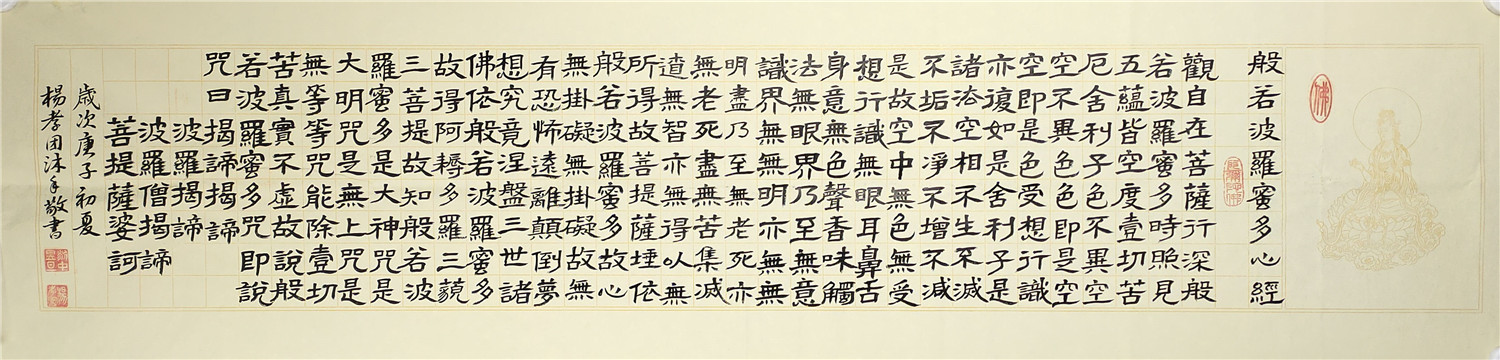 佛
般若波羅蜜多心經
觀自在菩薩行深般
若波羅蜜多時照見
五蘊皆空度壹切苦
厄舍利子色不異空
空不異色色即是空
空即是色受想行識
亦復如是舍利子是
諸法空相不生不滅
不垢不淨不增不減
是故空中無色無受
想行識無眼耳鼻舌
身意無色聲香味觸
法無眼界乃至無意
識界無無明亦無無
明盡乃至無老死亦
無老死盡無苦集滅
道無智亦無得以無
所得故菩提薩埵依
般若波羅蜜多故心
無掛礙無掛礙故無
有恐怖遠離顛倒夢
想究竟涅盤三世諸
佛依般若波羅蜜多
故得阿耨多羅三藐
三菩提故知般若波
羅蜜多是大神咒是
大明咒是無上咒是
無等等咒能除壹切
苦真實不虛故說般
若波羅蜜多咒即說
咒曰揭諦揭諦
波羅揭諦
波羅僧揭諦
菩提薩婆訶
歲次庚子初夏
楊孝团沐手敬書